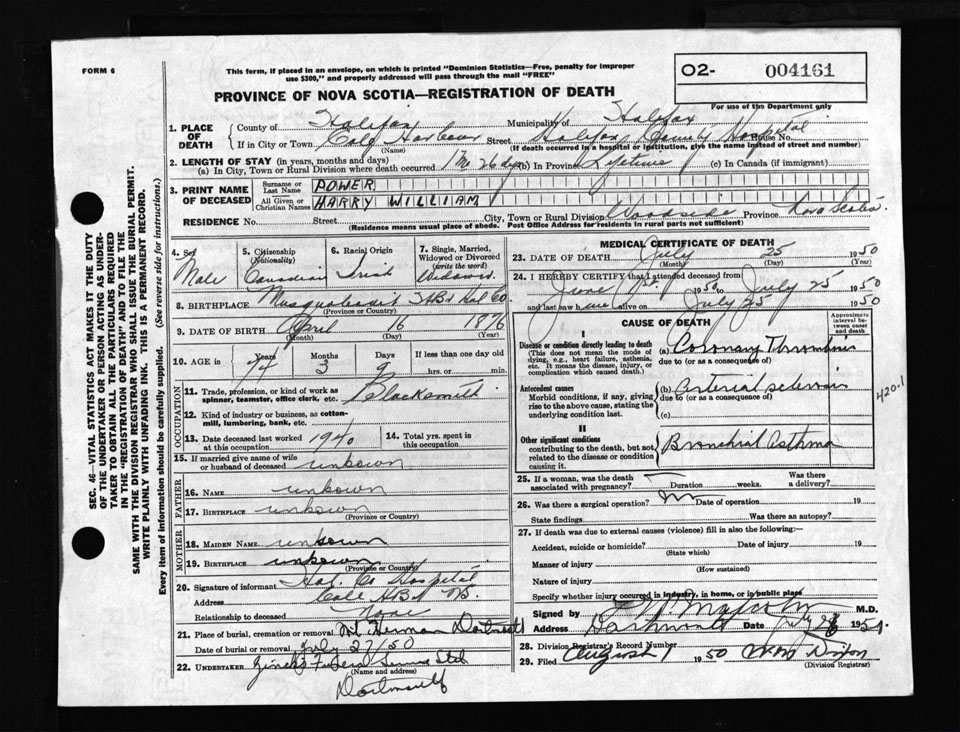 FORM 6
This form, if placed in an envelope, on which is printed "Dominion Statistics—Free, penalty for improper
use $300," and properly addressed will pass through the mail "FREE"
02- 004161
For use of the Department only
PROVINCE OF NOVA SCOTIA—REGISTRATION OF DEATH
1. PLACE OF DEATH
County of Halifax Municipality of Halifax
If in City or Town Cole Harbour (Name) Street Halifax County Hospital House No.
(If death occurred in a hospital or institution, give the name instead of street and number)
2. LENGTH OF STAY (in years, months and days)
(a) In City, Town or Rural Division where death occurred 1 Mo 26 dys (b) In Province Lifetime (c) In Canada (if immigrant)
3. PRINT NAME OF DECEASED
Surname or Last Name POWER
All Given or Christian Names HARRY WILLIAM
RESIDENCE No. Street City, Town or Rural Division Woodside Province Nova Scotia
(Residence means usual place of abode. Post Office Address for residents in rural parts not sufficient)
4. Sex Male
5. Citizenship (Nationality) Canadian
6. Racial Origin Irish
7. Single, Married, Widowed or Divorced (write the word) Widowed
8. BIRTHPLACE Musquodoboit Hbr Hal Co.
(Province or Country)
9. DATE OF BIRTH April 16 1876
(Month) (Day) (Year)
10. AGE in Years 74 Months 3 Days 9 If less than one day old hrs. or min.
OCCUPATION
11. Trade, profession, or kind of work as spinner, teamster, office clerk, etc. Blacksmith
12. Kind of industry or business, as cotton-mill, lumbering, bank, etc.
13. Date deceased last worked at this occupation 1940
14. Total yrs. spent in this occupation
15. If married give name of wife or husband of deceased unkown
FATHER
16. NAME unkown
17. BIRTHPLACE unkown
(Province or Country)
MOTHER
18. MAIDEN NAME unkown
19. BIRTHPLACE unkown
(Province or Country)
20. Signature of informant Hal. Co Hospital
Address Cole Hbr NS.
Relationship to deceased None
21. Place of burial, cremation or removal Mt Herman Dartmouth
Date of burial or removal July 27/50
22. UNDERTAKER Funeral Ltd
(Name and address)
Dartmouth
MEDICAL CERTIFICATE OF DEATH
23. DATE OF DEATH July 25 1950
(Month) (Day) (Year)
24. I HEREBY CERTIFY that I attended deceased from
June 1st. 1950 to July 25 1950
and last saw him alive on July 25 1950
CAUSE OF DEATH
Approximate interval between onset and death
I
Disease or condition directly leading to death
(This does not mean the mode of dying, e.g., heart failure, asthenia, etc. It means the disease, injury, or complication which caused death.)
(a) Coronary Thrombosis
due to (or as a consequence of)
Antecedent causes
Morbid conditions, if any, giving rise to the above cause, stating the underlying condition last.
(b) Arterial sclerosis
due to (or as a consequence of)
(c)
420.1
II
Other significant conditions
contributing to the death, but not related to the disease or condition causing it.
Bronchial Asthma
25. If a woman, was the death associated with pregnancy? Duration weeks. Was there a delivery?
26. Was there a surgical operation? No Date of operation 19
State findings Was there an autopsy?
27. If death was due to external causes (violence) fill in also the following:—
Accident, suicide or homicide? Date of injury 19
(State which)
Manner of injury
(How sustained)
Nature of injury
Specify whether injury occurred in industry, in home, or in public place
Signed by Malcolm M.D.
Address Dartmouth Date July 28 1950.
28. Division Registrar's Record Number
29. Filed August 1 1950 Dixon
(Division Registrar)
SEC. 46—VITAL STATISTICS ACT MAKES IT THE DUTY
OF THE UNDERTAKER OR PERSON ACTING AS UNDER-
TAKER TO OBTAIN ALL THE PARTICULARS REQUIRED
IN THE "REGISTRATION OF DEATH" AND TO FILE THE
SAME WITH THE DIVISION REGISTRAR WHO SHALL ISSUE THE BURIAL PERMIT.
WRITE PLAINLY WITH UNFADING INK. THIS IS A PERMANENT RECORD.
Every item of information should be carefully supplied. (See reverse side for instructions.)